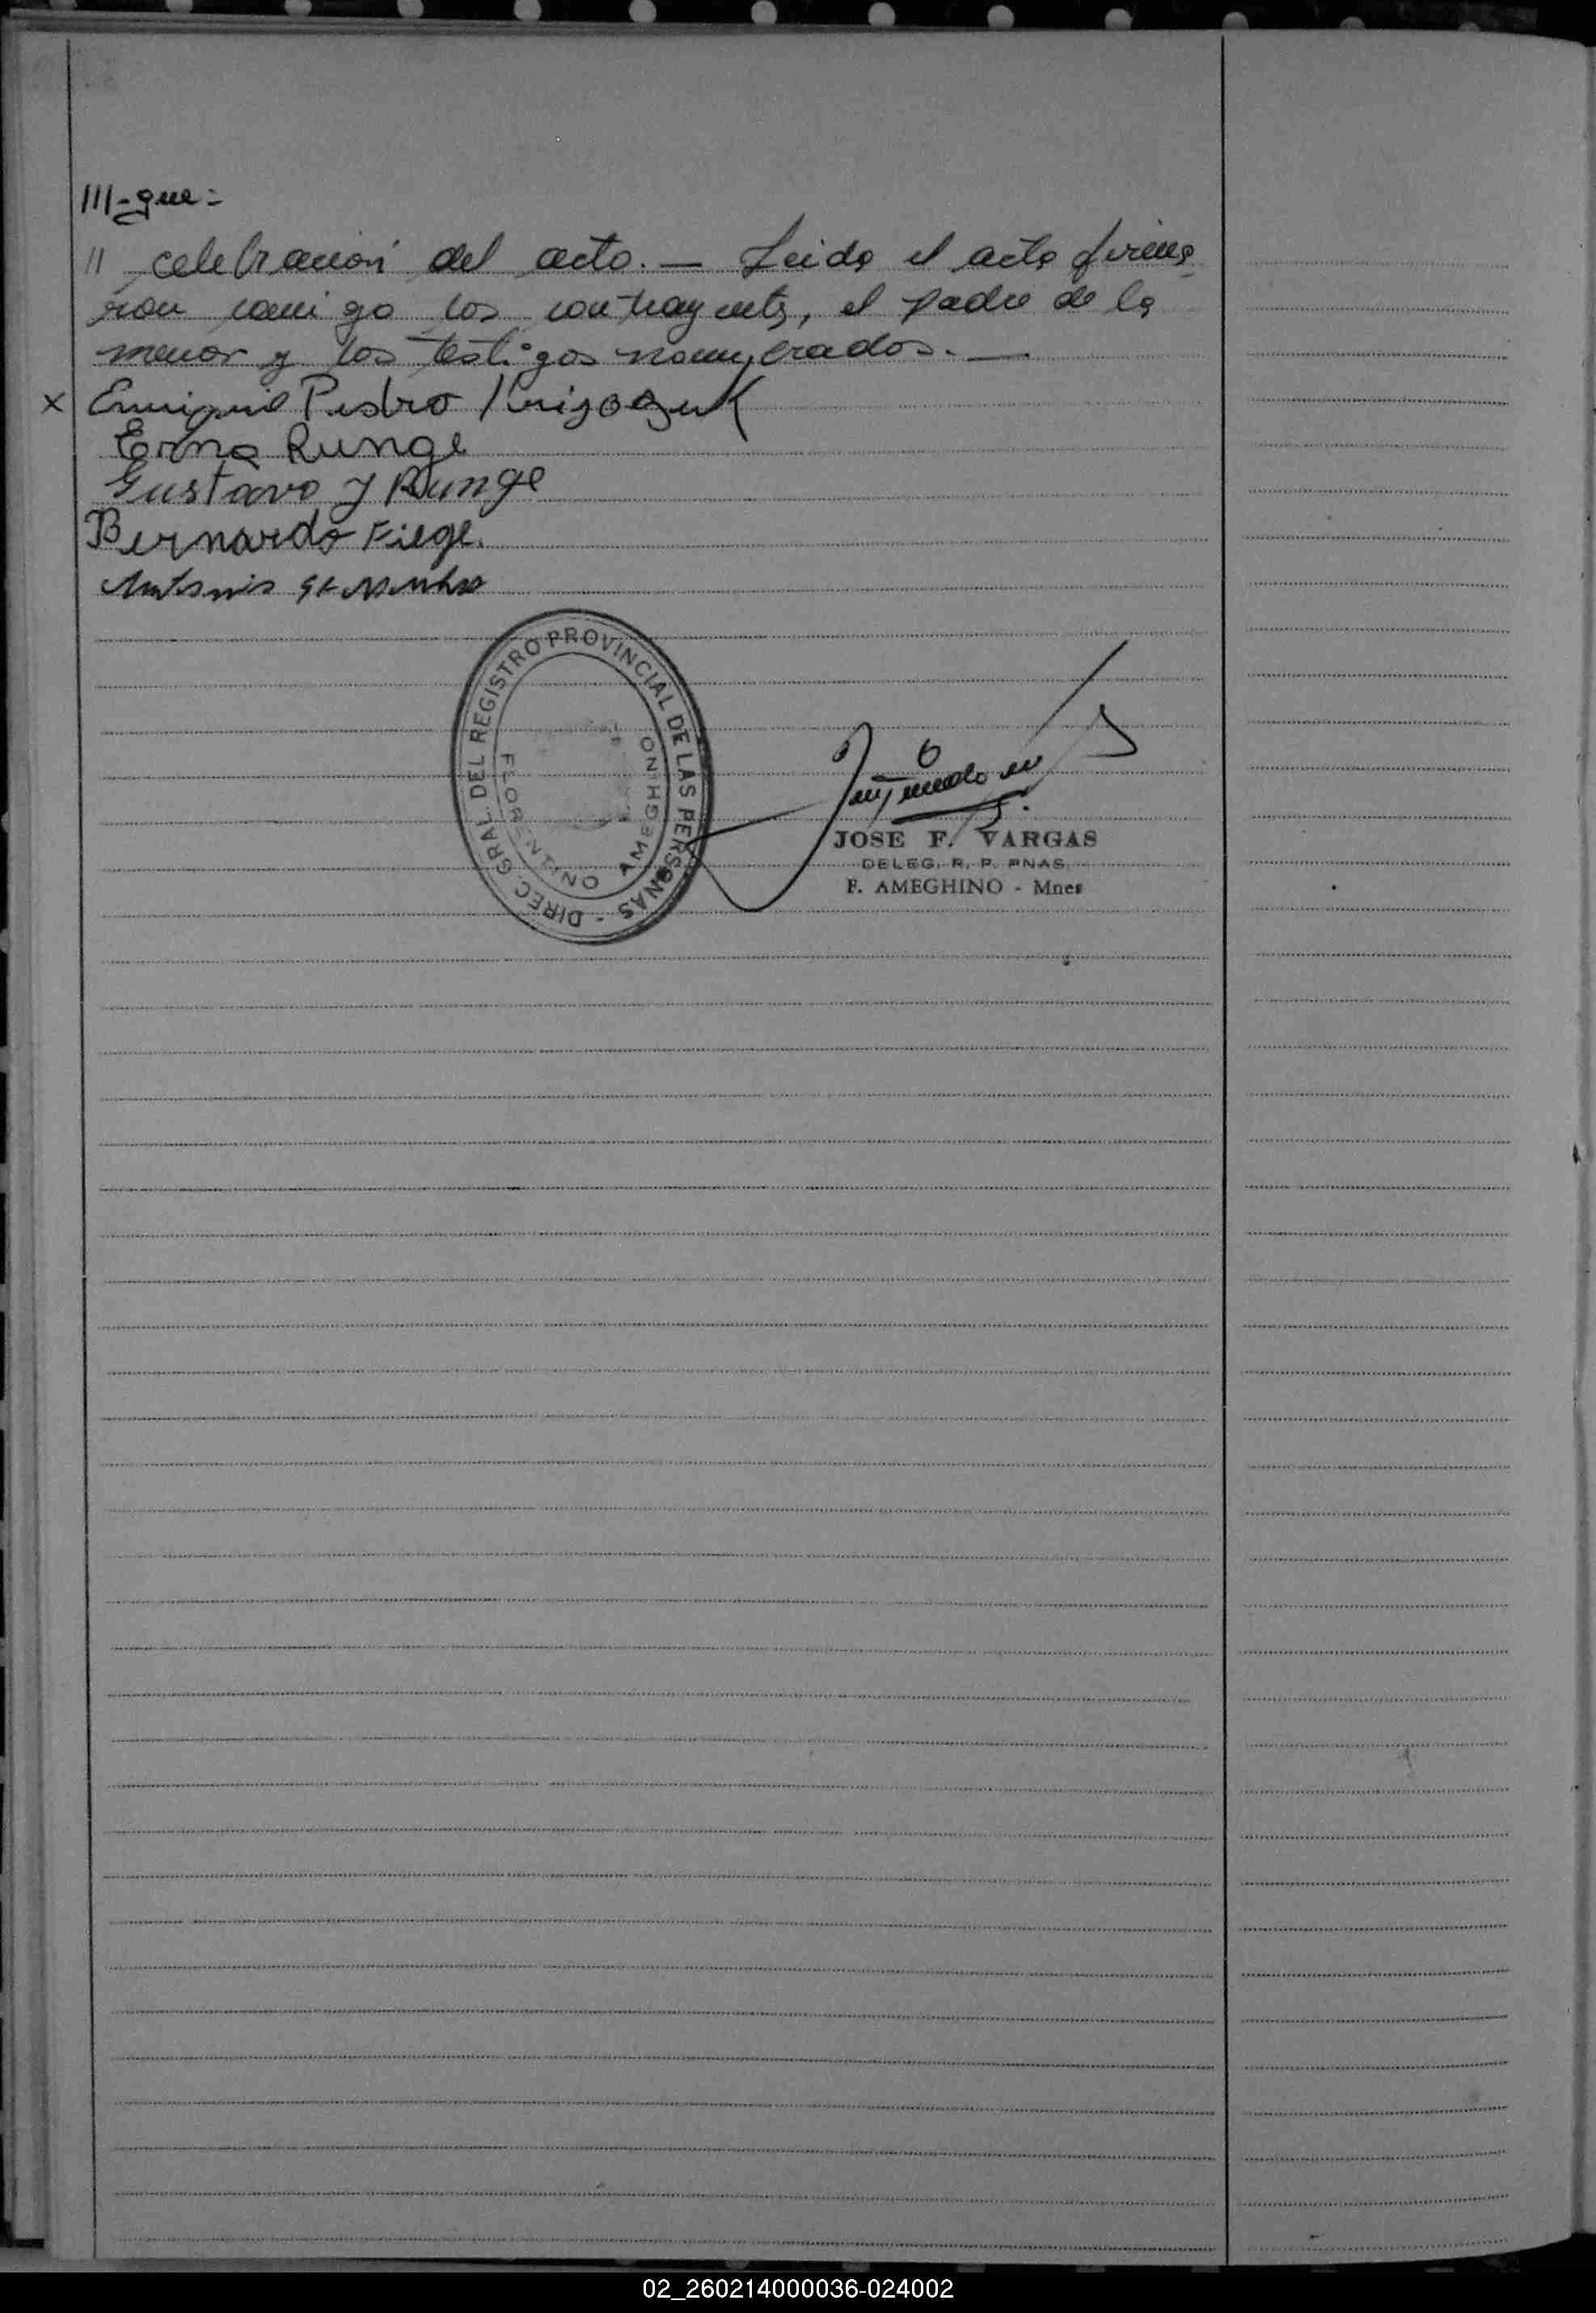 ///-gue=
// celebración del acto. — Leida el acta firma-
ron conmigo los contrayentes, el padre de la
menor y los testigos nombrados. —
x Enrique Pedro
Erna Runge
Gustavo J Runge
Bernardo Fiege.
Antonio
DIREC. GRAL. DEL REGISTRO PROVINCIAL DE LAS PERSONAS -
FLORENTINO AMEGHINO
JOSE F. VARGAS
DELEG. R. P. PNAS.
F. AMEGHINO - Mnes
02_260214000036-024002